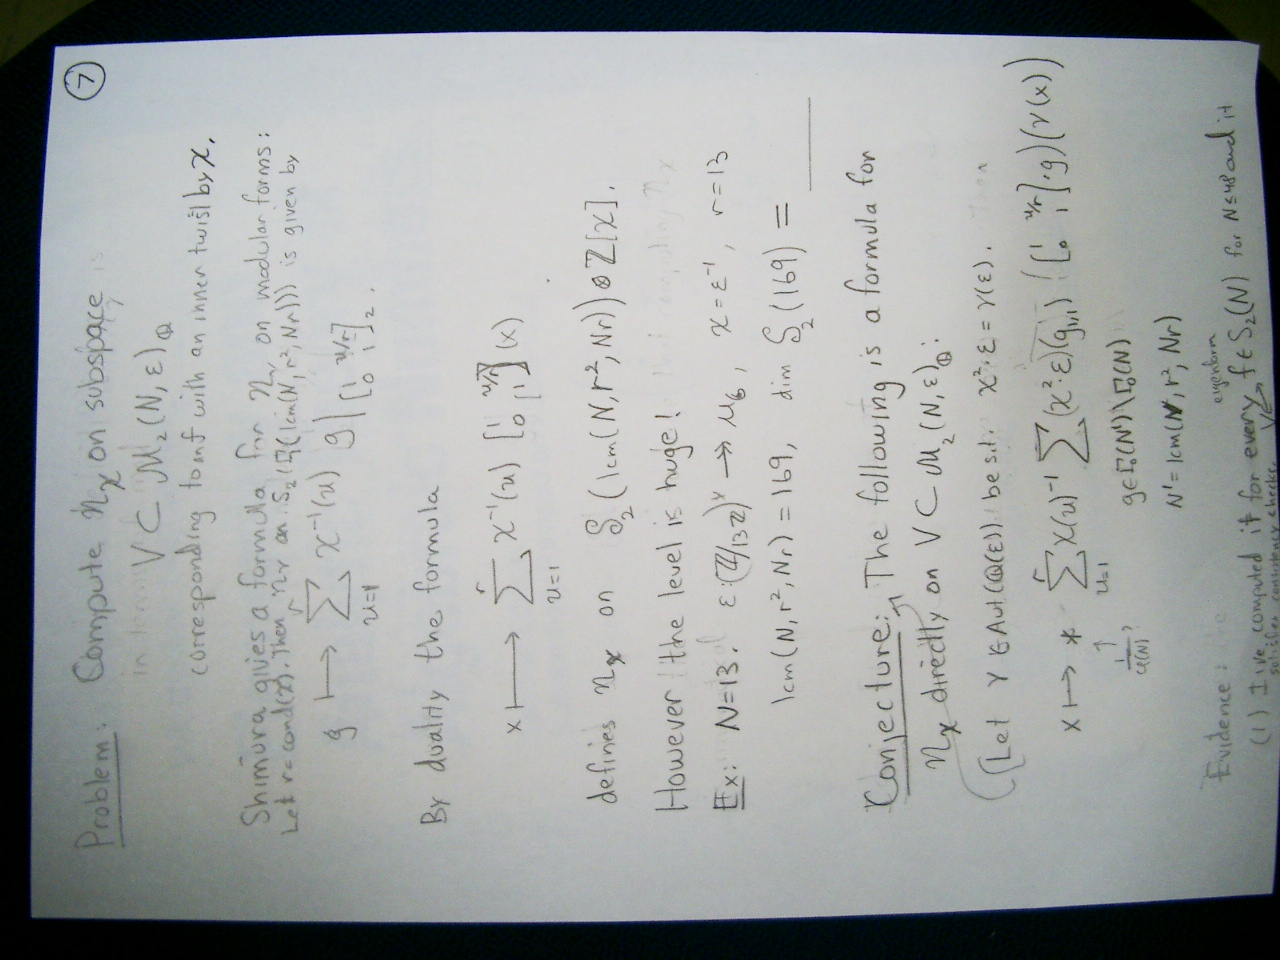 ⑦
Problem: Compute η_χ on subspace
V ⊂ M_2(N, ε)_Q
corresponding to f with an inner twist by χ.
Shimura gives a formula for η_χ on modular forms:
Let r = cond(χ). Then η_χ on S_2(Γ_1(lcm(N, r², Nr))) is given by
g ⟼ Σ_{u=1}^{r} χ^{-1}(u) g|[1 u/r; 0 1]_2.
By duality the formula
x ⟼ Σ_{u=1}^{r} χ^{-1}(u) [1 u/r; 0 1](x)
defines η_χ on S_2(lcm(N, r², Nr)) ⊗ Z[χ].
However the level is huge!
Ex: N=13. ε:(Z/13Z)^× → μ_6, χ = ε^{-1}, r=13
lcm(N, r², Nr) = 169, dim S_2(169) = ____
Conjecture: The following is a formula for
η_χ directly on V ⊂ M_2(N, ε)_Q:
(Let γ ∈ Aut(Q(ε)) be s.t. χ²·ε = γ(ε).
x ⟼ * Σ_{u=1}^{r} χ(u)^{-1} Σ (χ²·ε)(g_{1,1}) ([1 u/r; 0 1]·g)(γ(x))
g∈Γ_1(N')\Γ_1(N)
N' = lcm(N, r², Nr)
Evidence:
eigenform
(1) I've computed it for every f ∈ S_2(N) for N≤48 and it
satisfies consistency checks.